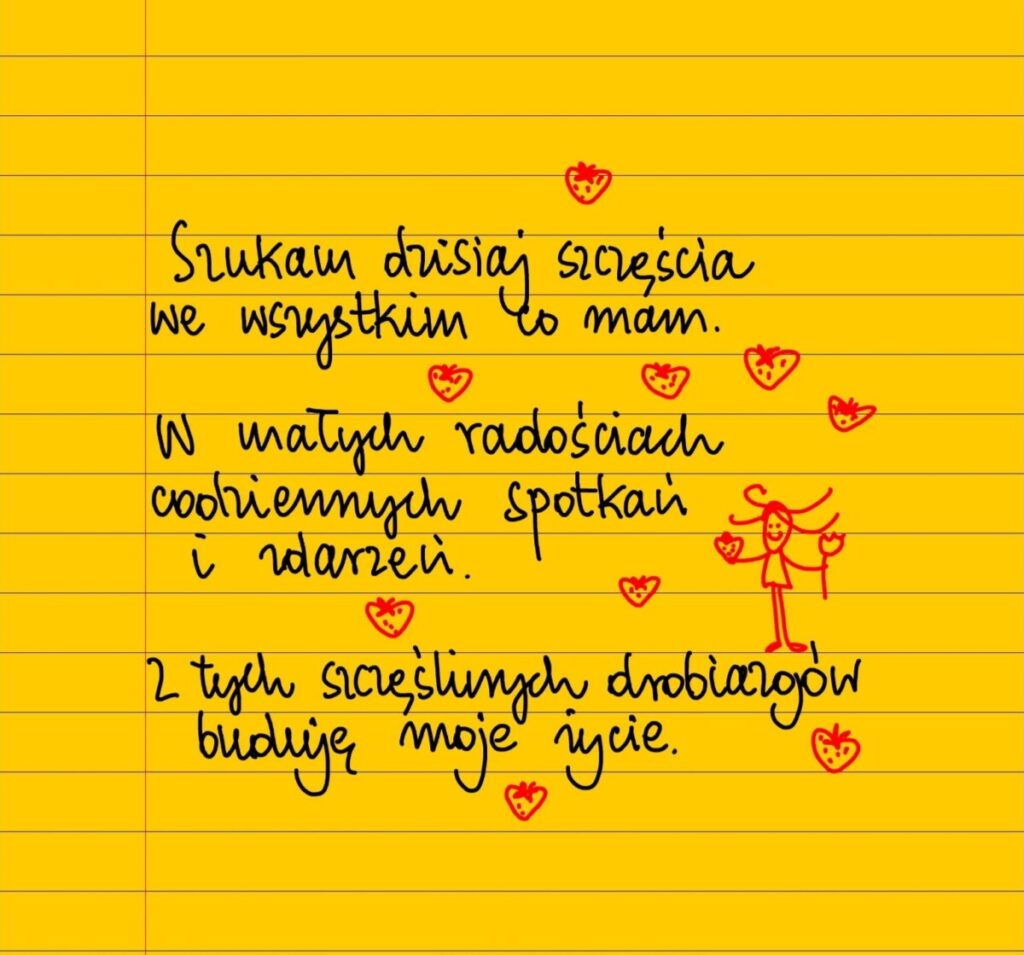 Szukam dzisiaj szczęścia
we wszystkim co mam.
W małych radościach
codziennych spotkań
i zdarzeń.
Z tych szczęśliwych drobiazgów
buduję moje życie.